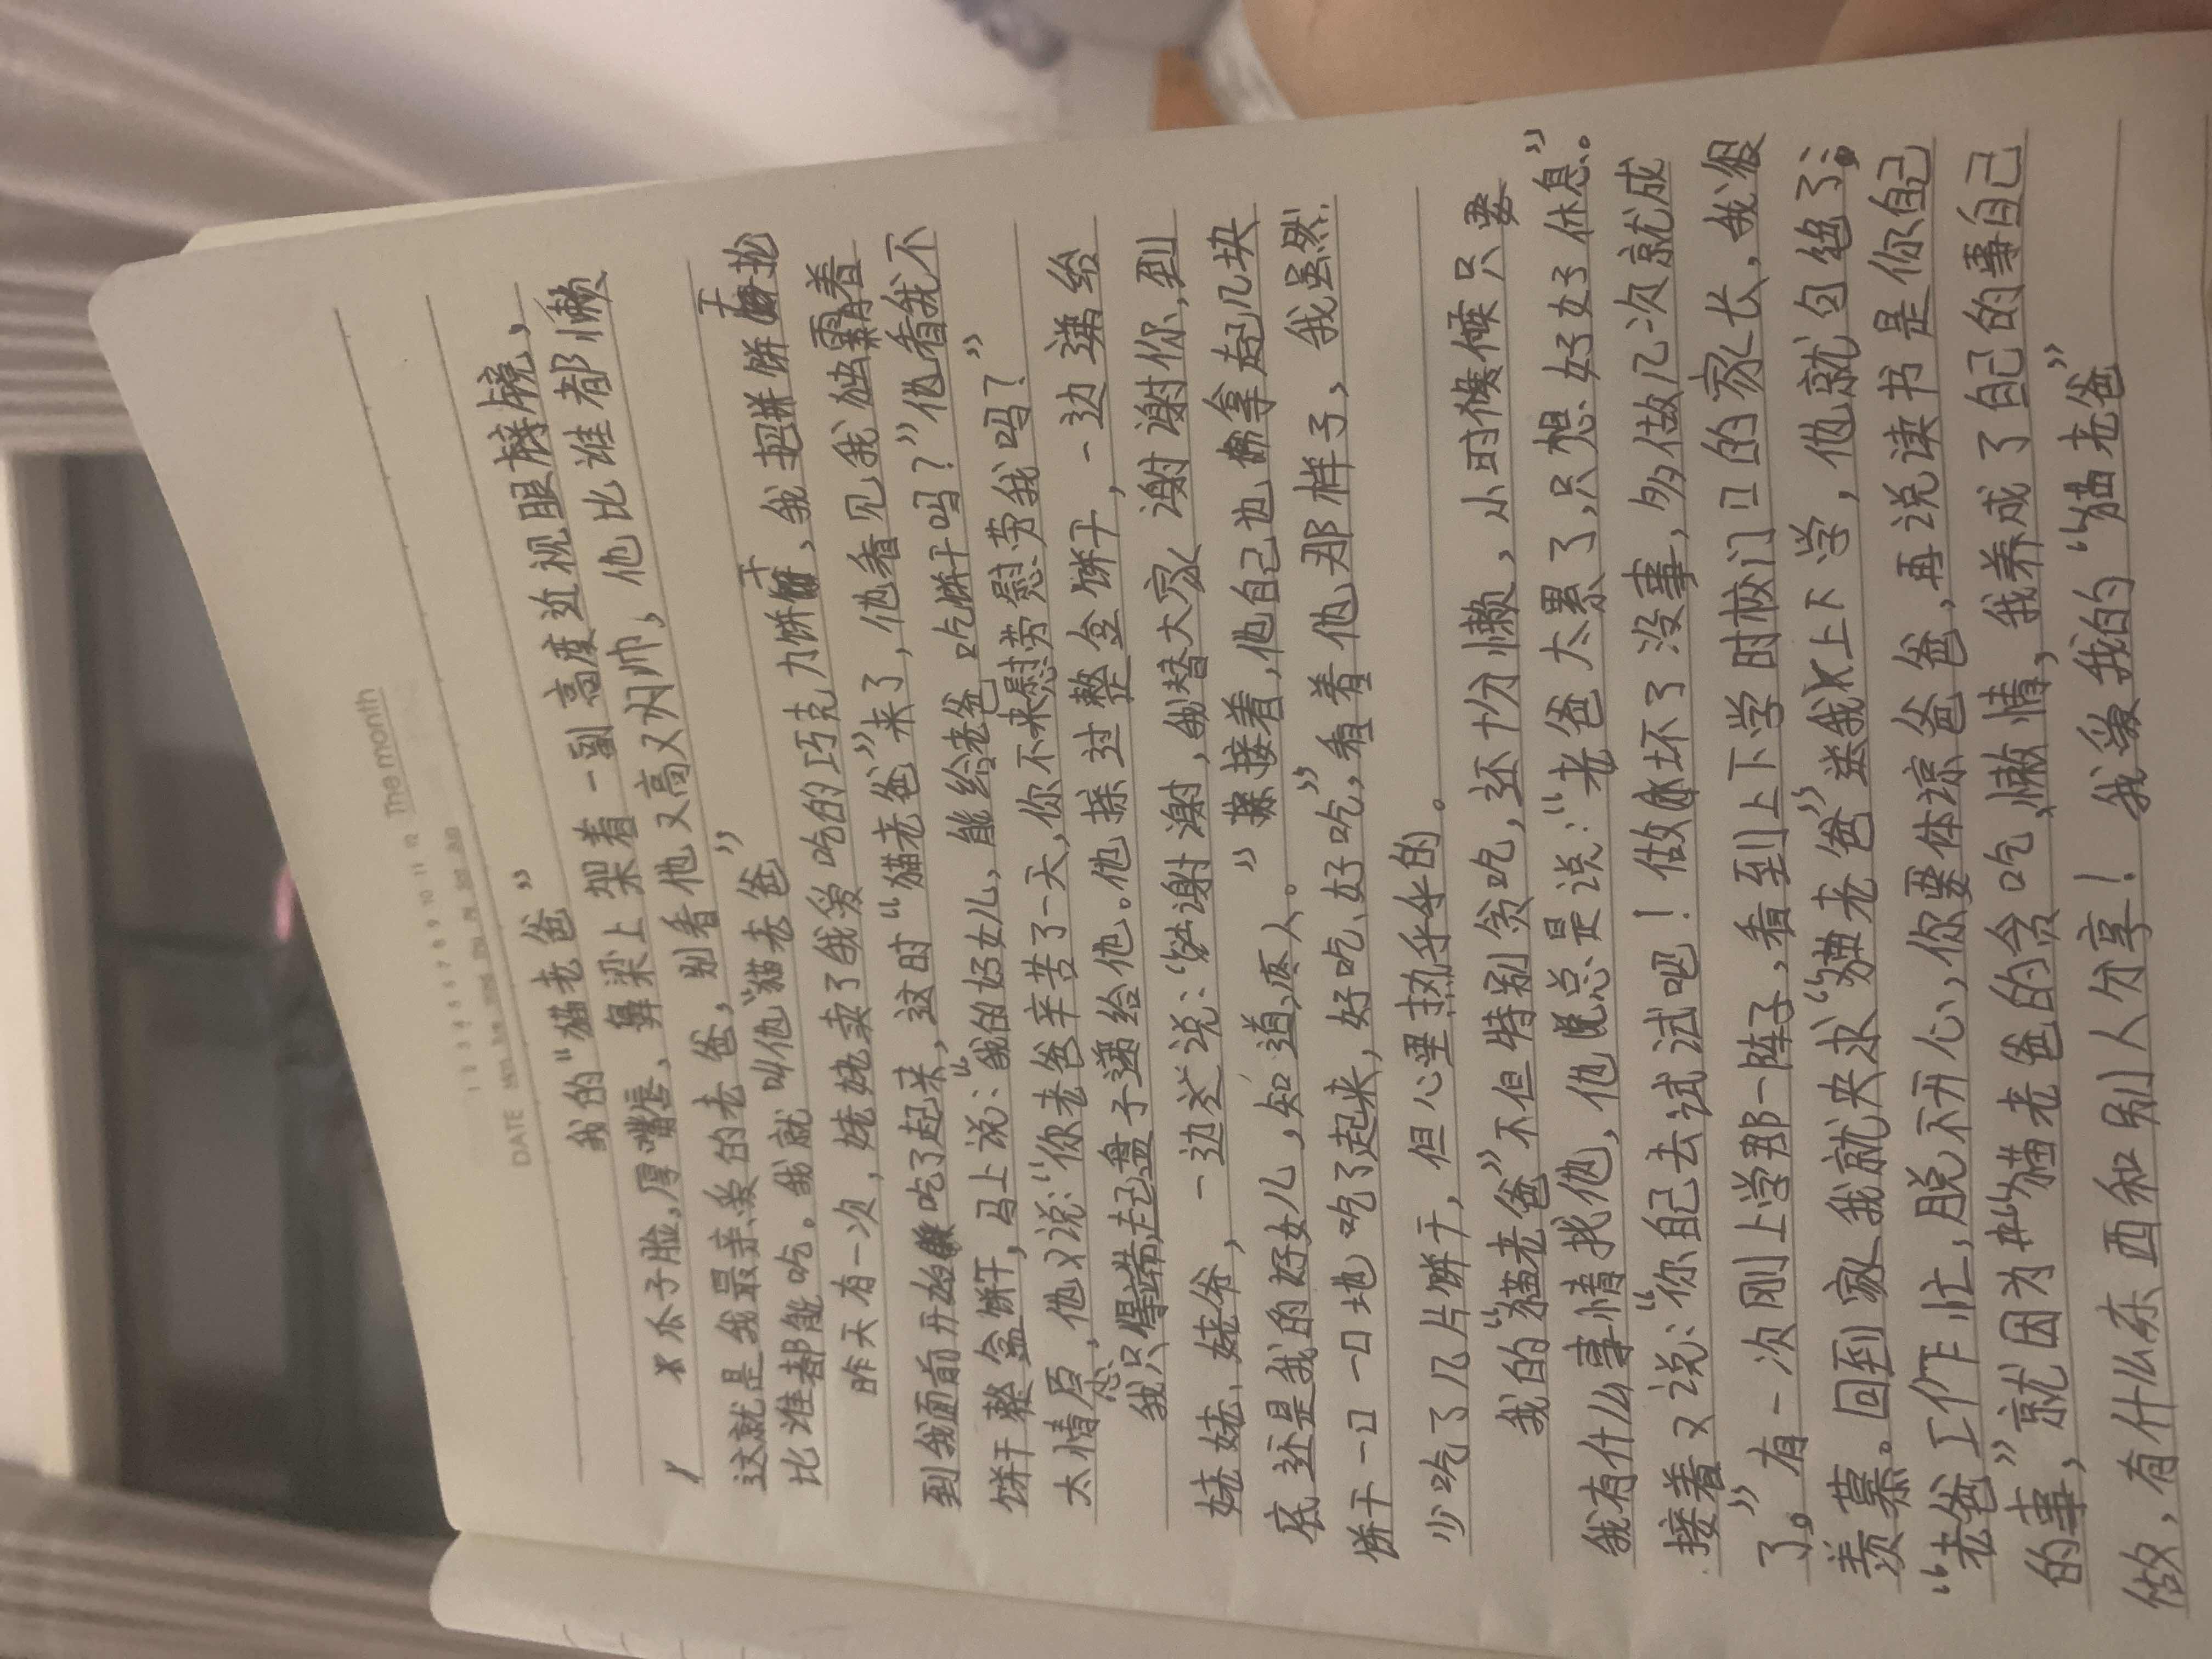 The month
1 2 3 4 5 6 7 8 9 10 11 12
DATE Mon Tue Wed Thu Fri Sat Sun
我的“猫老爸”
瓜子脸,厚嘴唇、鼻梁上架着一副高度近视眼膀镜,
这就是我最亲爱的老爸,别看他又高又帅,他比谁都懒
比谁都能吃。我就叫他“猫老爸”
昨天有一次,姥姥卖了我爱吃的巧克力饼干,我把饼干抢
到我面前开始吃了起来,这时“猫老爸”来了,他看见我独霸着
饼干整盒饼干,马上说:“我的好女儿,能给老爸吃饼干吗?”他看我不
太情愿,他又说:“你老爸辛苦了一天,你不来慰劳慰劳我吗?”
我只得端起盘子递给他。他接过整盒饼干,一边递给
姥姥、姥爷,一边说:“谢谢,我替大家谢谢你,到
底还是我的好女儿,知道疼人。”接着,他自己也拿起几块
饼干一口一口地吃了起来,好吃、好吃”,看着他那样子,我虽然
少吃了几片饼干,但心里热乎乎的。
我的“猫老爸”不但特别贪吃,还十分懒,小时候只要
我有什么事情找他,他总是说:“老爸太累了,只想好好休息。”
接着又说:“你自己去试试吧!做坏了没事,多做几次就成
了。”有一次刚上学那一阵子,看到上下学时校门口的家长,我很
羡慕。回到家我就央求“猫老爸”送我上下学,他就包绝了:
“老爸工作忙,脱不开心,你要体凉爸爸,再说读书是你自己
的事”就因为“猫老爸的贪吃、懒惰,我养成了自己的事自己
做,有什么东西和别人分享!我爱我的“猫老爸”